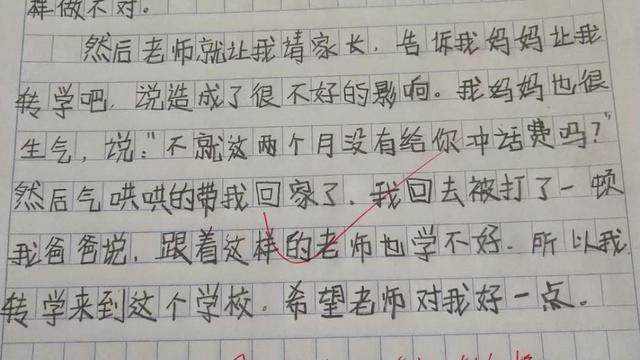 样做不对。
然后老师就让我请家长，告诉我妈妈让我
转学吧，说造成了很不好的影响。我妈妈也很
生气，说："不就这两个月没有给你冲话费吗？"
然后气哄哄的带我回家了，我回去被打了一顿
我爸爸说，跟着这样的老师也学不好．所以我
转学来到这个学校。希望老师对我好一点。